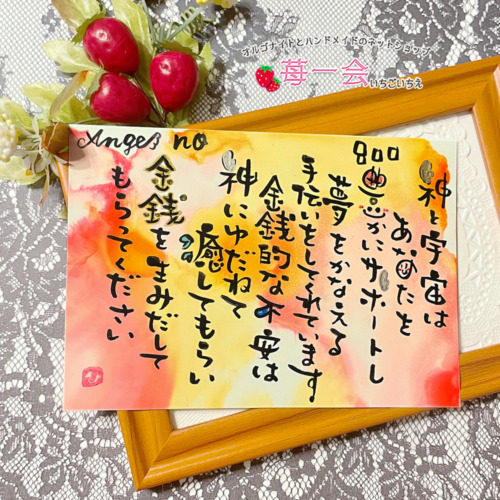 オルゴナイトとハンドメイドのネットショップ
苺一会 いちごいちえ
Angel no
800
神と宇宙は
あなたを
豊かにサポートし
夢をかなえる
手伝いをしてくれています
金銭的な不安は
神にゆだねて
癒してもらい
金銭を生みだして
もらってください